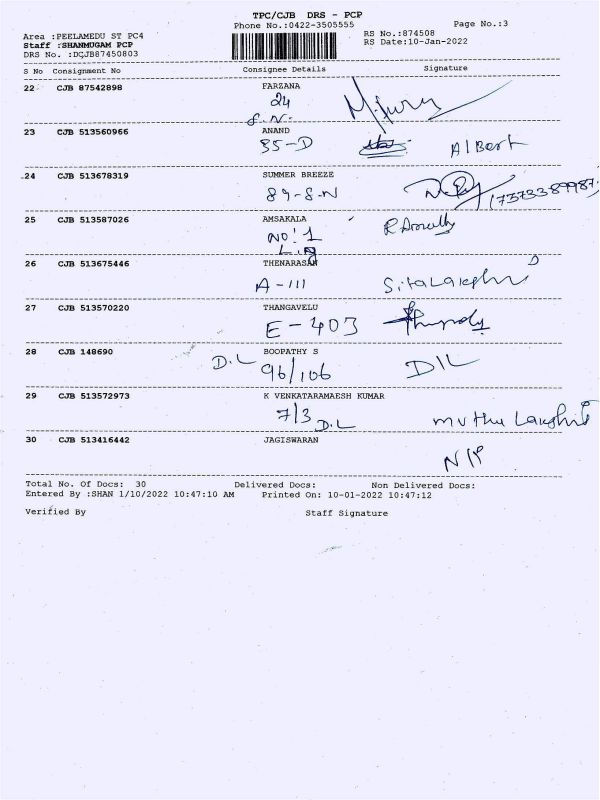 TPC/CJB DRS - PCP
Phone No.:0422-3505555
Page No.:3
Area :PEELAMEDU ST PC4
RS No.:874508
Staff :SHANMUGAM PCP
RS Date:10-Jan-2022
DRS No. :DCJB87450803
S No Consignment No Consignee Details Signature
22 CJB 87542898 FARZANA
24
S.N.
23 CJB 513560966 ANAND
35-D Albert
24 CJB 513678319 SUMMER BREEZE
89-S.N
25 CJB 513587026 AMSAKALA
NO: 1
26 CJB 513675446 THENARASAN
A-111
27 CJB 513570220 THANGAVELU
E-403
28 CJB 148690 BOOPATHY S
D.L 96/106 D/L
29 CJB 513572973 K VENKATARAMAESH KUMAR
7/3 D.L
30 CJB 513416442 JAGISWARAN
Total No. Of Docs: 30 Delivered Docs: Non Delivered Docs:
Entered By :SHAN 1/10/2022 10:47:10 AM Printed On: 10-01-2022 10:47:12
Verified By Staff Signature